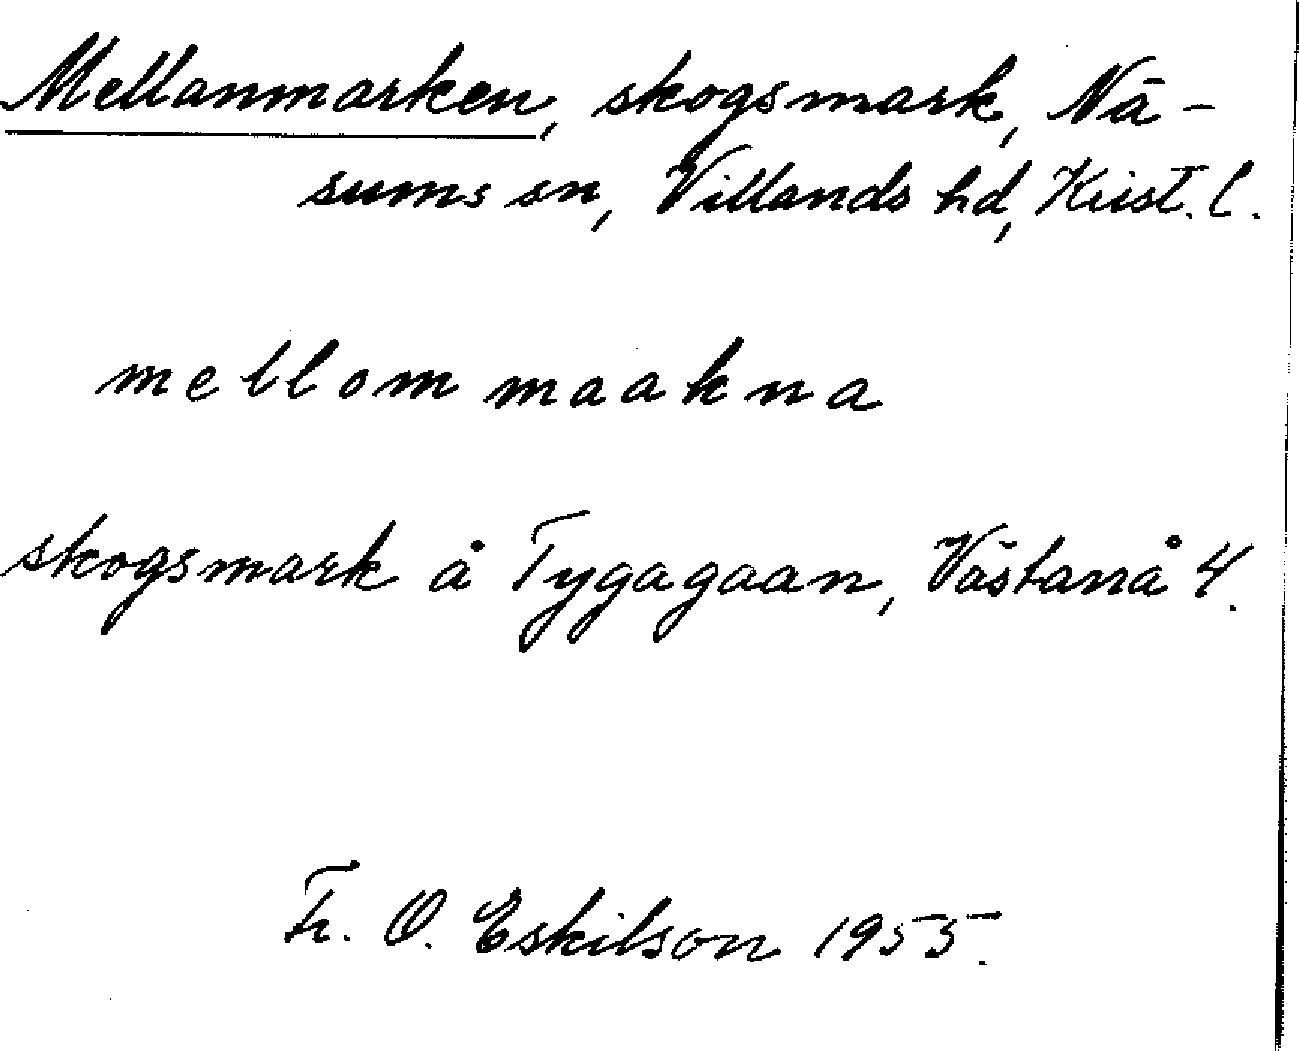 Mellanmarken, skogsmark, Nä-
sums sn, Villands hd, Krist. l.
mellom maakna
skogsmark å Tygagaan, Västanå 4.
Fr. O. Eskilson 1955.